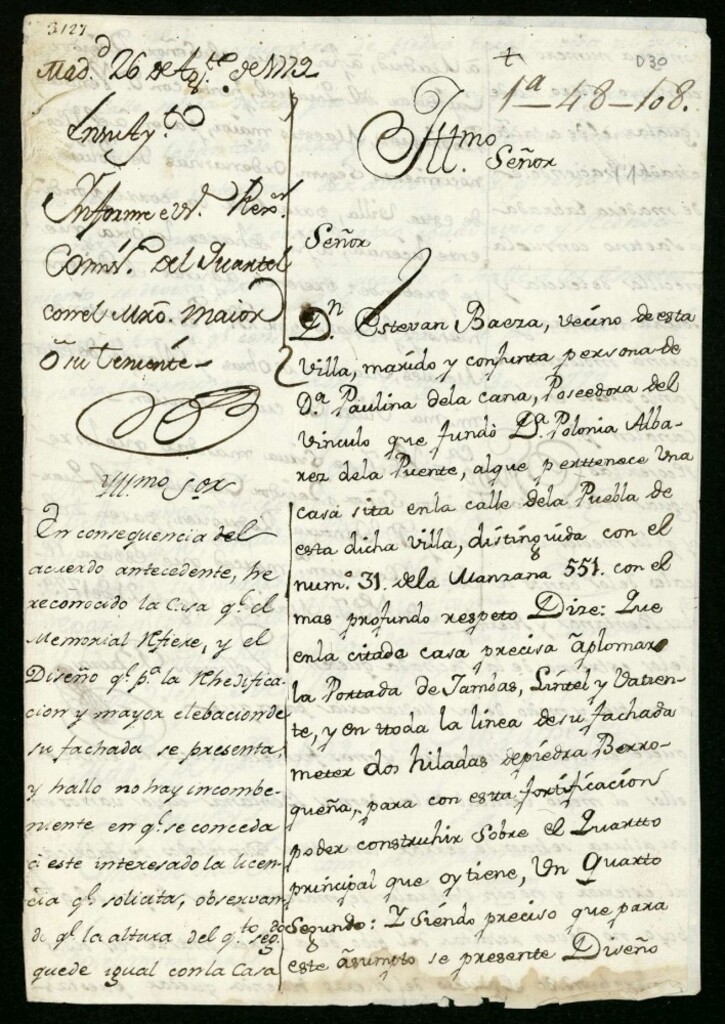 3127
D30
Mad.d 26 de Ag.to de 1772
+
1a-48-108.
Yllmo
Señor
En su Ay.to
Informe el S.r Rex.r
Comis.o del Quartel
con el Mro. Maior
ō su Teniente-
Señor
D.n Estevan Baeza, vecino de esta
Villa, marido y conjunta persona de
D.a Paulina dela cana, Poseedora del
Vinculo que fundò D.a Polonia Alba-
rez dela Puente, alque perttenece Una
casa sita enla calle dela Puebla de
esta dicha Villa, distinguida con el
num.o 31. dela Manzana 551. con el
mas profundo respeto Dize: Que
enla citada casa precisa āplomar
la Portada de Jambas, Lintel y Vatien-
te, y en ttoda la linea de su fachada
meter dos hiladas de piedra Berro-
queña, para con esta fortificacion
poder construhir sobre el Quartto
principal que oy tiene, Un Quarto
Segundo: Y siendo preciso que para
este āsumpto se presente Diseño
Yllmo Sor
En consequencia del
acuerdo antecedente, he
reconocido la Casa q.e el
Memorial Refiere, y el
Diseño q.e p.a la Rhedifica-
cion y mayor elebacion de
su fachada se presenta,
y hallo no hay incombe-
niente en q.e se conceda
à este interesado la licen-
cia q.e solicita, observan-
do q.e la altura del q.to seg.do
quede igual con la Casa